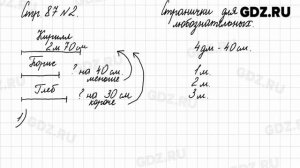 GDZ.RU
Стр. 87 № 2.
Кирилл
2 м 70 см
Борис
? на 40 см.
меньше
Глеб
? на 30 см
короче
1)
Странички для
любознательных.
4 дм - 40 см.
1 м.
2 м.
3 м.